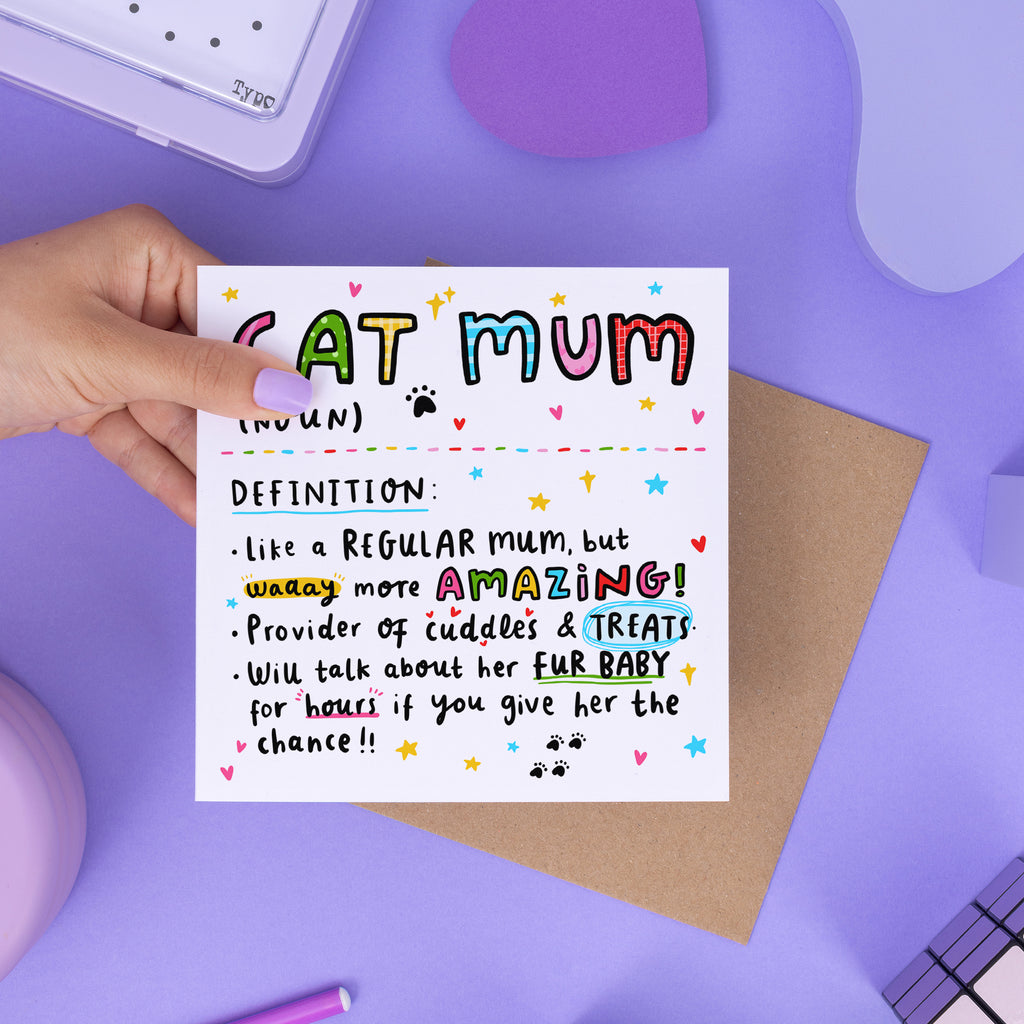 Typo
CAT MUM
(NOUN)
DEFINITION:
• Like a REGULAR MUM, but
waaay more AMAZING!
• Provider of cuddles & TREATS.
• Will talk about her FUR BABY
for "hours" if you give her the
chance!!